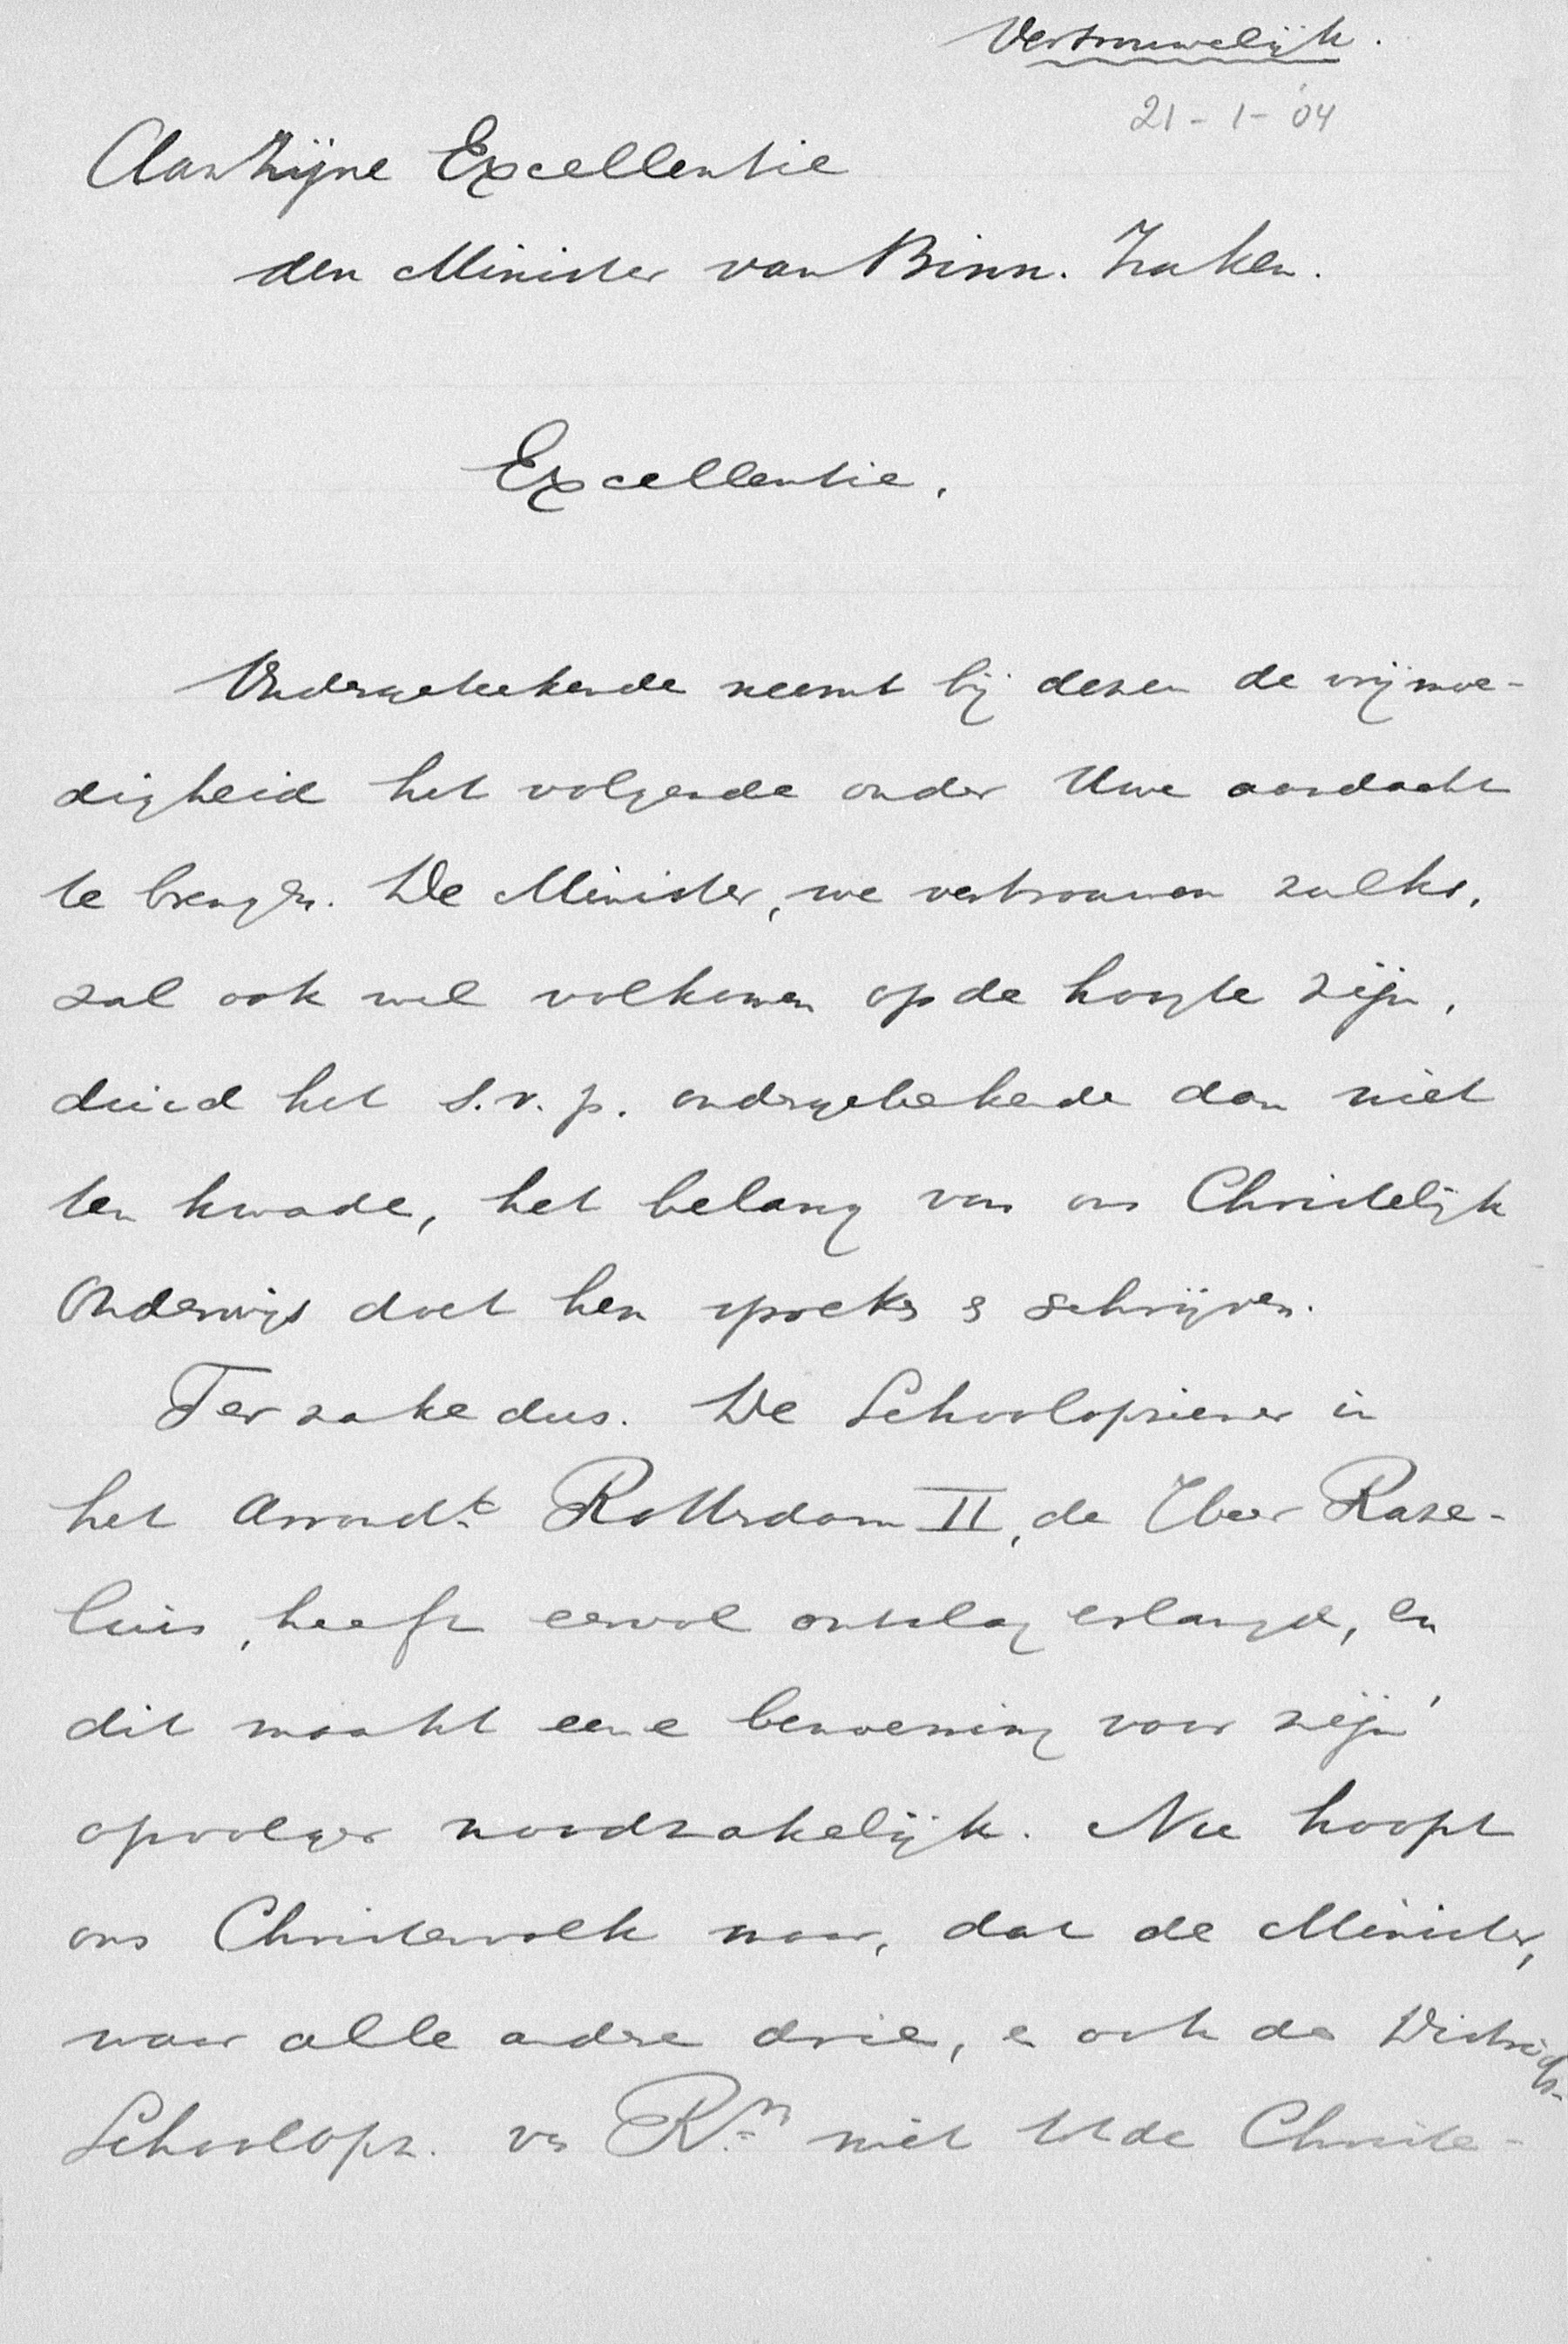 Vertrouwelijk.
21-1-'04
Aan Zijne Excellentie
den Minister van Binn. Zaken.
Excellentie,
Ondergeteekende neemt bij dezen de vrijmoe-
digheid het volgende onder Uwe aandacht
te brengen. De Minister, we vertrouwen zulks,
zal ook wel volkomen op de hoogte zijn,
duid het s.v.p. ondergeteekende dan niet
ten kwade, het belang van ons Christelijk
Onderwijs doet hen spreken & schrijven.
Ter zake dus. De Schoolopziener in
het Arrondt. Rotterdam II, de Heer Raze-
luis, heeft eervol ontslag erlangd, en
dit maakt eene benoeming voor zijn
opvolger noodzakelijk. Nu hoopt
ons Christenvolk maar, dat de Minister,
waar alle andre drie, en ook de Districts-
Schoolopz. van R.m niet tot de Christe-